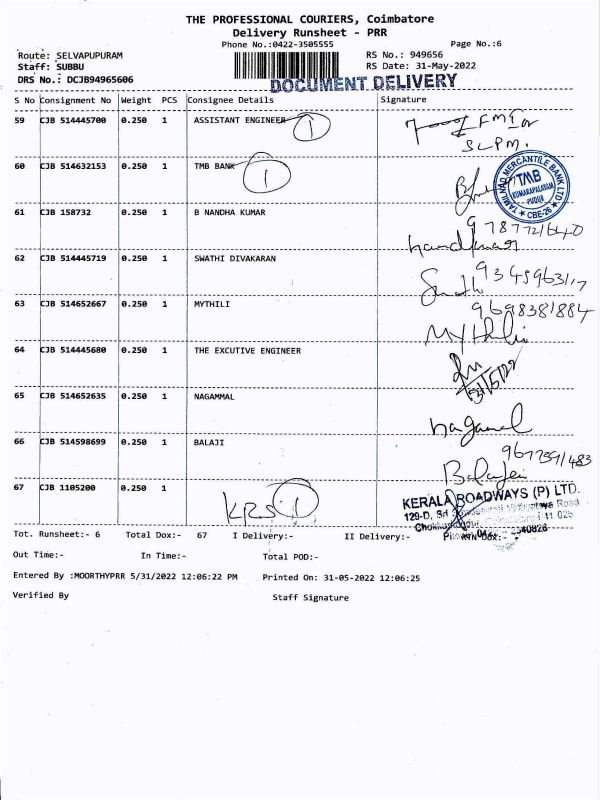 THE PROFESSIONAL COURIERS, Coimbatore
Delivery Runsheet - PRR
Phone No.:0422-3505555
Page No.:6
Route: SELVAPUPURAM
RS No.: 949656
Staff: SUBBU
RS Date: 31-May-2022
DRS No.: DCJB94965606
DOCUMENT DELIVERY
S No Consignment No Weight PCS Consignee Details Signature
59 CJB 514445700 0.250 1 ASSISTANT ENGINEER 1
SLPM.
60 CJB 514632153 0.250 1 TMB BANK 1
TAMILNAD MERCANTILE BANK LTD
TMB
KUMARAPALAYAM
PUDUR
CBE-26
61 CJB 158732 0.250 1 B NANDHA KUMAR
9787721640
nandkumar
62 CJB 514445719 0.250 1 SWATHI DIVAKARAN
63 CJB 514652667 0.250 1 MYTHILI
9698381884
Mythili
64 CJB 514445680 0.250 1 THE EXCUTIVE ENGINEER
31/5/22
65 CJB 514652635 0.250 1 NAGAMMAL
nagamal
66 CJB 514598699 0.250 1 BALAJI
Balaji
67 CJB 1105200 0.250 1
KRS 1
KERALA ROADWAYS (P) LTD.
129-D, Sri
Tot. Runsheet:- 6 Total Dox:- 67 I Delivery:- II Delivery:-
Out Time:- In Time:- Total POD:-
Entered By :MOORTHYPRR 5/31/2022 12:06:22 PM Printed On: 31-05-2022 12:06:25
Verified By Staff Signature